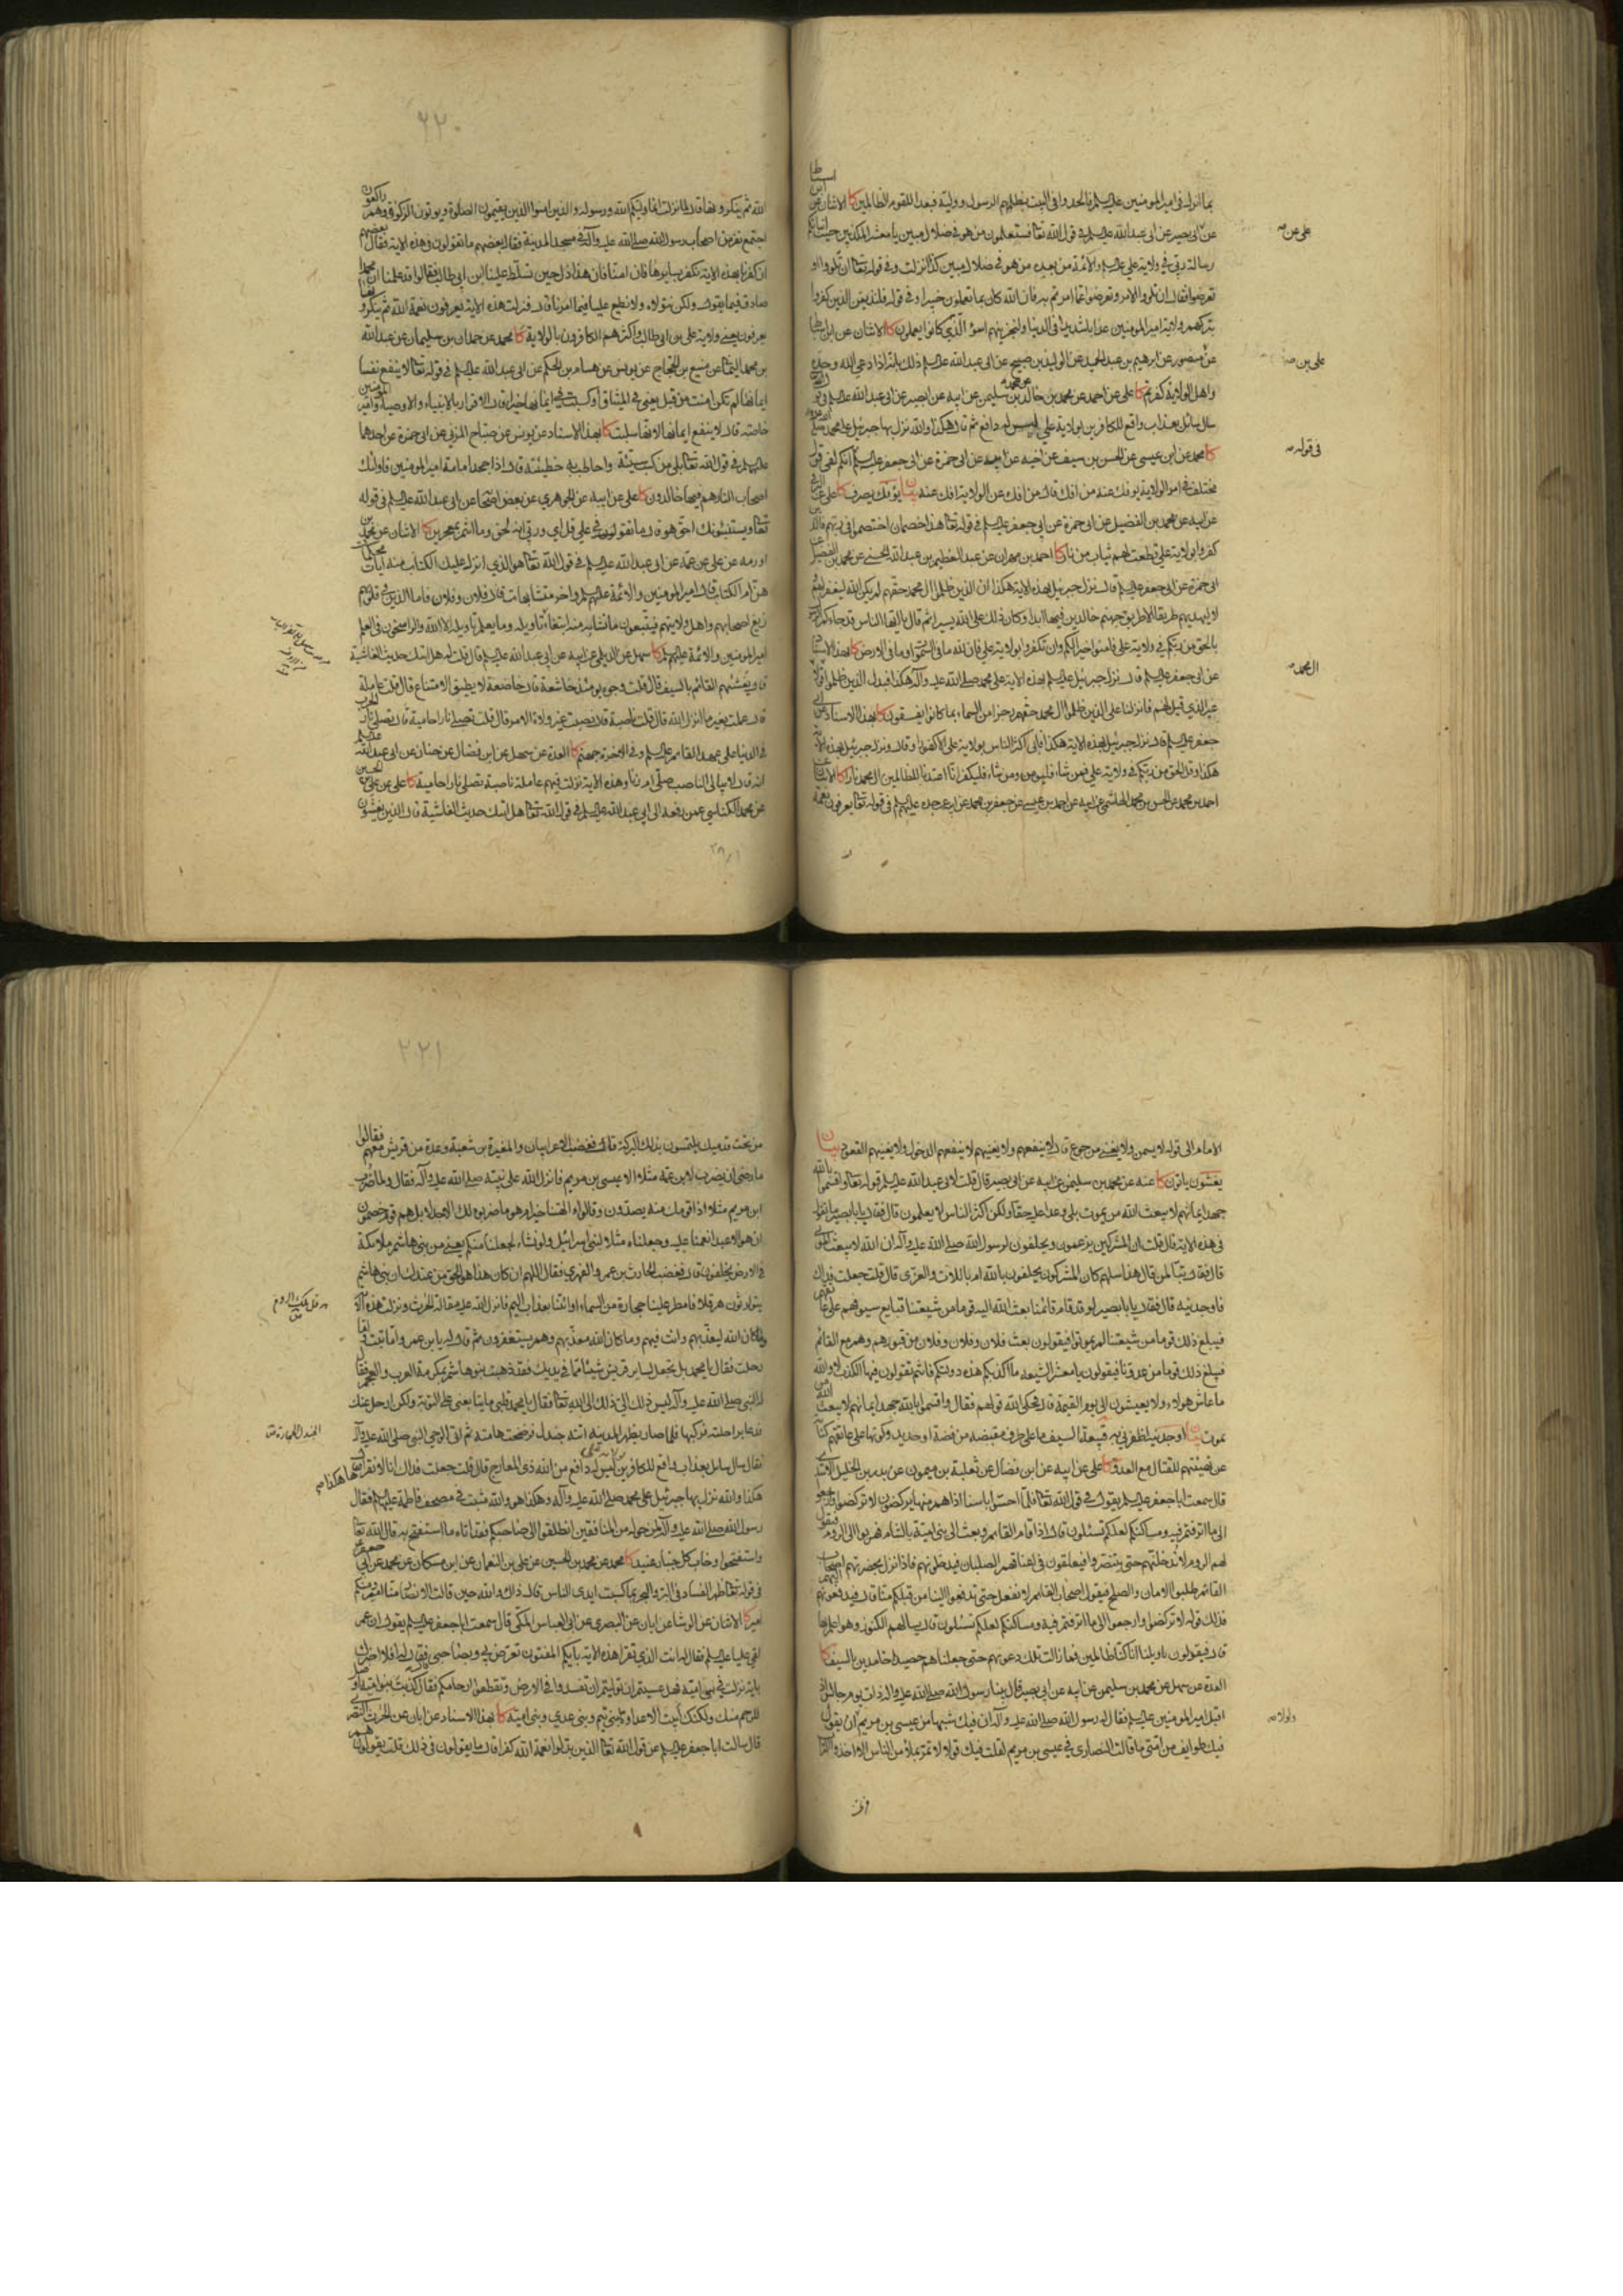 بما انزله في امير المؤمنين عليه السلم
عن ابي بصير عن ابي عبد الله عليه السلم في قول الله تعا فستعلمون من هو في ضلال مبين يا معشر المكذبين حيث انباتكم
رسالة ربي في ولاية علي عليه السلم والائمة من بعده من هو في ضلال مبين كذا نزلت وفي قوله تعا ان تلووا او
تعرضوا فقال ان تلووا الامر وتعرضوا عما امرتم به فان الله كان بما تعملون خبيرا وفي قوله فلنذيقن الذين كفروا
بتركهم ولاية امير المؤمنين عذابا شديدا في الدنيا ولنجزينهم اسوأ الذي كانوا يعملون كا الاثنان عن ابن اسباط
عن منصور عن ابرهيم بن عبد الحميد عن الوليد بن صبيح عن ابي عبد الله عليه السلم ذلك بانه اذا دعي الله وحده
واهل الولاية كفرتم كا علي عن احمد عن محمد بن خالد عن محمد بن سليمن عن ابيه عن ابي بصير عن ابي عبد الله عليه السلم في قوله
سال سائل بعذاب واقع للكافرين بولاية علي ليس له دافع ثم قال هكذا والله نزل بها جبرئيل على محمد
كا محمد عن ابن عيسى عن الحسن بن سيف عن اخيه عن ابيه عن ابي حمزة عن ابي جعفر عليه السلم انكم لفي قول
مختلف في امر الولاية يؤفك عنه من افك قال من افك عن الولاية افك عنه بيان يؤفك يصرف كا علي عن
عن ابيه عن محمد بن الفضيل عن ابي حمزة عن ابي جعفر عليه السلم في قوله تعا هذان خصمان اختصموا في ربهم فالذين
كفروا بولاية علي قطعت لهم ثياب من نار كا احمد بن مهران عن عبد العظيم بن عبد الله الحسني عن محمد بن الفضيل عن
ابي حمزة عن ابي جعفر عليه السلم قال نزل جبرئيل بهذه الاية هكذا ان الذين ظلموا ال محمد حقهم لم يكن الله ليغفر لهم
ولا ليهديهم طريقا الا طريق جهنم خالدين فيها ابدا وكان ذلك على الله يسيرا ثم قال يا ايها الناس قد جاءكم الرسول
بالحق من ربكم في ولاية علي فامنوا خيرا لكم وان تكفروا بولاية علي فان لله ما في السموات وما في الارض كا بهذا الاسناد
عن ابي جعفر عليه السلم قال نزل جبرئيل عليه السلم بهذه الاية على محمد صلى الله عليه وآله هكذا فبدل الذين ظلموا
غير الذي قيل لهم فانزلنا على الذين ظلموا ال محمد حقهم رجزا من السماء بما كانوا يفسقون كا بهذا الاسناد عن ابي
جعفر عليه السلم قال نزل جبرئيل بهذه الاية هكذا فابى اكثر الناس بولاية علي الا كفورا قال ونزل جبرئيل بهذه الاية
هكذا وقل الحق من ربكم في ولاية علي فمن شاء فليؤمن ومن شاء فليكفر انا اعتدنا للظالمين ال محمد نارا كا الاثنان
احمد بن محمد عن الحسن بن محمد الهاشمي عن ابيه عن احمد بن عيسى عن جعفر بن محمد عن ابيه عن جده عليهم السلم في قوله تعا يعرفون نعمة
علي عن صه
علي بن صه
في قوله صه
ال محمد صه
٢٢٠
الله ثم ينكرونها قال لما نزلت انما وليكم الله ورسوله والذين امنوا الذين يقيمون الصلوة ويؤتون الزكوة وهم راكعون
اجتمع نفر من اصحاب رسول الله صلى الله عليه وآله في مسجد المدينة فقال بعضهم ما تقولون في هذه الاية فقال بعضهم
ان كفرنا بهذه الاية نكفر بسايرها فان امنا فان هذا ذل حين تسلط علينا ابن ابي طالب فقالوا قد علمنا ان محمدا
صادق فيما يقول ولكن نتولاه ولا نطيع عليا فيما امرنا قال فنزلت هذه الاية يعرفون نعمة الله ثم ينكرونها
يعرفون يعني ولاية علي بن ابي طالب واكثرهم الكافرون بالولاية كا محمد عن حمدان بن سليمان عن عبد الله
بن محمد اليماني عن منيع بن الحجاج عن يونس عن هشام بن الحكم عن ابي عبد الله عليه السلم في قوله تعا لا ينفع نفسا
ايمانها لم تكن امنت من قبل يعني في الميثاق او كسبت في ايمانها خيرا قال الاقرار بالانبياء والاوصياء وامير المؤمنين
خاصة قال لا ينفع ايمانها لانها سلبت كا بهذا الاسناد عن يونس عن صباح المزني عن ابي حمزة عن احدهما
عليهما السلم في قول الله تعا بلى من كسب سيئة واحاطت به خطيئته قال اذا جحد امامة امير المؤمنين فاولئك
اصحاب النار هم فيها خالدون كا علي عن ابيه عن الجوهري عن بعض اصحابنا عن ابي عبد الله عليه السلم في قوله
تعا ويستنبئونك احق هو قال ما تقول في علي قل اي وربي انه لحق وما انتم بمعجزين كا الاثنان عن محمد بن
اورمة عن علي عن عمه عن ابي عبد الله عليه السلم في قول الله تعا هو الذي انزل عليك الكتاب منه ايات محكمات
هن ام الكتاب قال امير المؤمنين والائمة عليهم السلم واخر متشابهات قال فلان وفلان فاما الذين في قلوبهم
زيغ اصحابهم واهل ولايتهم فيتبعون ما تشابه منه ابتغاء تاويله وما يعلم تاويله الا الله والراسخون في العلم
امير المؤمنين والائمة عليهم السلم كا سهل عن الديلمي عن ابيه عن ابي عبد الله عليه السلم قال قلت له هل اتيك حديث الغاشية
قال يغشيهم القائم بالسيف قال قلت وجوه يومئذ خاشعة قال خاضعة لا يطيق الامتناع قال قلت عاملة
قال عملت بغير ما انزل الله قال قلت ناصبة قال نصبت غير ولاة الامر قال قلت تصلى نارا حامية قال تصلى نار الحرب
في الدنيا على عهد القائم عليه السلم وفي الاخرة جهنم كا العدة عن سهل عن ابن فضال عن حنان عن ابي عبد الله عليه السلم
انه قال لا يبالي الناصب صلى ام زنا وهذه الاية نزلت فيهم عاملة ناصبة تصلى نارا حامية كا علي عن علي بن الحسين
عن محمد الكناسي عمن رفعه الى ابي عبد الله عليه السلم في قول الله تعا هل اتيك حديث الغاشية قال الذين يغشون
الامام الى قوله لا يسمن ولا يغني من جوع قال لا ينفعهم ولا يغنيهم لا ينفعهم الدخول ولا يغنيهم القعود بيان
يغشون ياتون كا عنه عن محمد بن سليمن عن ابيه عن ابي بصير قال قلت لابي عبد الله عليه السلم قوله تعا واقسموا بالله
جهد ايمانهم لا يبعث الله من يموت بلى وعدا عليه حقا ولكن اكثر الناس لا يعلمون قال فقال يا ابا بصير ما تقول
في هذه الاية قال قلت ان المشركين يزعمون ويحلفون لرسول الله صلى الله عليه وآله ان الله لا يبعث الموتى
قال فقال تبا لمن قال هذا سلهم كان المشركون يحلفون بالله ام باللات والعزى قال قلت جعلت فداك
فاوجدنيه قال فقال يا ابا بصير لو قد قام قائمنا بعث الله اليه قوما من شيعتنا قبايع سيوفهم على عواتقهم
فيبلغ ذلك قوما من شيعتنا لم يموتوا فيقولون بعث فلان وفلان وفلان من قبورهم وهم مع القائم
فيبلغ ذلك قوما من عدونا فيقولون يا معشر الشيعة ما اكذبكم هذه دولتكم فانتم تقولون فيها الكذب لا والله
ما عاش هؤلاء ولا يعيشون الى يوم القيمة قال فحكى الله قولهم فقال واقسموا بالله جهد ايمانهم لا يبعث الله من
يموت بيان اوجدنيه اظفرني به قبيعة السيف ما على طرف مقبضه من فضة او حديد وكونها على عاتقهم كناية
عن تهيئتهم للقتال مع العدو كا علي عن ابيه عن ابن فضال عن ثعلبة بن ميمون عن بدر بن الخليل الاسدي
قال سمعت ابا جعفر عليه السلم يقول في قول الله تعا فلما احسوا باسنا اذا هم منها يركضون لا تركضوا وارجعوا
الى ما اترفتم فيه ومساكنكم لعلكم تسئلون قال اذا قام القائم وبعث الى بني امية بالشام هربوا الى الروم فيقول
لهم الروم لا ندخلنكم حتى تتنصروا فيعلقون في اعناقهم الصلبان فيدخلونهم فاذا نزل بحضرتهم اصحاب
القائم طلبوا الامان والصلح فيقول اصحاب القائم لا نفعل حتى تدفعوا الينا من قبلكم منا قال فيدفعونهم اليهم
فذلك قوله لا تركضوا وارجعوا الى ما اترفتم فيه ومساكنكم لعلكم تسئلون قال يسالهم الكنوز وهو اعلم بها
قال فيقولون يا ويلنا انا كنا ظالمين فما زالت تلك دعويهم حتى جعلناهم حصيدا خامدين بالسيف كا
العدة عن سهل عن محمد بن سليمن عن ابيه عن ابي بصير قال بينا رسول الله صلى الله عليه وآله ذات يوم جالس اذ
اقبل امير المؤمنين عليه السلم فقال له رسول الله صلى الله عليه وآله ان فيك شبها من عيسى بن مريم ان يقول
فيك طوايف من امتي ما قالت النصارى في عيسى بن مريم لقلت فيك قولا لا تمر بملأ من الناس الا اخذوا التراب
ولولا صه
٢٢١
من تحت قدميك يلتمسون بذلك البركة قال فغضب الاعرابيان والمغيرة بن شعبة وعدة من قريش معهم فقالوا
ما رضي ان يضرب لابن عمه مثلا الا عيسى بن مريم فانزل الله على نبيه صلى الله عليه وآله فقال ولما ضرب
ابن مريم مثلا اذا قومك منه يصدون وقالوا ءالهتنا خير ام هو ما ضربوه لك الا جدلا بل هم قوم خصمون
ان هو الا عبد انعمنا عليه وجعلناه مثلا لبني اسرائيل ولو نشاء لجعلنا منكم يعني من بني هاشم ملائكة
في الارض يخلفون قال فغضب الحارث بن عمرو الفهري فقال اللهم ان كان هذا هو الحق من عندك ان بني هاشم
يتوارثون هرقلا فامطر علينا حجارة من السماء او ائتنا بعذاب اليم فانزل الله عليه مقالة الحرث ونزلت هذه الاية
وما كان الله ليعذبهم وانت فيهم وما كان الله معذبهم وهم يستغفرون ثم قال له يا بن عمرو اما تبت واما
رحلت فقال يا محمد بل تجعل لساير قريش شيئا مما في يديك فقد ذهبت بنو هاشم بمكرمة العرب والعجم فقال
له النبي صلى الله عليه وآله ليس ذلك الي ذلك الى الله تعا فقال يا محمد قلبي ما يتابعني على التوبة ولكن ارحل عنك
فدعا براحلته فركبها فلما صار بظهر المدينة اتته جندلة فرضخت هامته ثم اتى الوحي النبي صلى الله عليه وآله
فقال سال سايل بعذاب واقع للكافرين بولاية علي ليس له دافع من الله ذي المعارج قال قلت جعلت فداك انا لا نقراها هكذا
هكذا والله نزل بها جبرئيل على محمد صلى الله عليه وآله وهكذا هو والله مثبت في مصحف فاطمة عليها السلم فقال
رسول الله صلى الله عليه وآله لمن حوله من المنافقين انطلقوا الى صاحبكم فقد اتاه ما استفتح به قال الله تعا
واستفتحوا وخاب كل جبار عنيد كا محمد عن محمد بن الحسين عن علي بن النعمان عن ابن مسكان عن محمد عن ابي جعفر
في قوله تعا ظهر الفساد في البر والبحر بما كسبت ايدي الناس قال ذلك والله حين قالت الانصار منا امير ومنكم
امير كا الاثنان عن الوشا عن ابان عن البصري عن ابي العباس المكي قال سمعت ابا جعفر عليه السلم يقول ان عمر
لقي عليا عليه السلم فقال له انت الذي تقرا هذه الاية بايكم المفتون تعرض بي وبصاحبي فقال له افلا اخبرك
باية نزلت في بني امية فهل عسيتم ان توليتم ان تفسدوا في الارض وتقطعوا ارحامكم فقال كذبت بنو امية اوصل
للرحم منك ولكنك ابيت الا عداوة لبني تيم وبني عدي وبني امية كا بهذا الاسناد عن ابان عن الحرث النصري
قال سالت ابا جعفر عليه السلم عن قول الله تعا الذين بدلوا نعمة الله كفرا قال ما يقولون في ذلك قلت يقولون هم